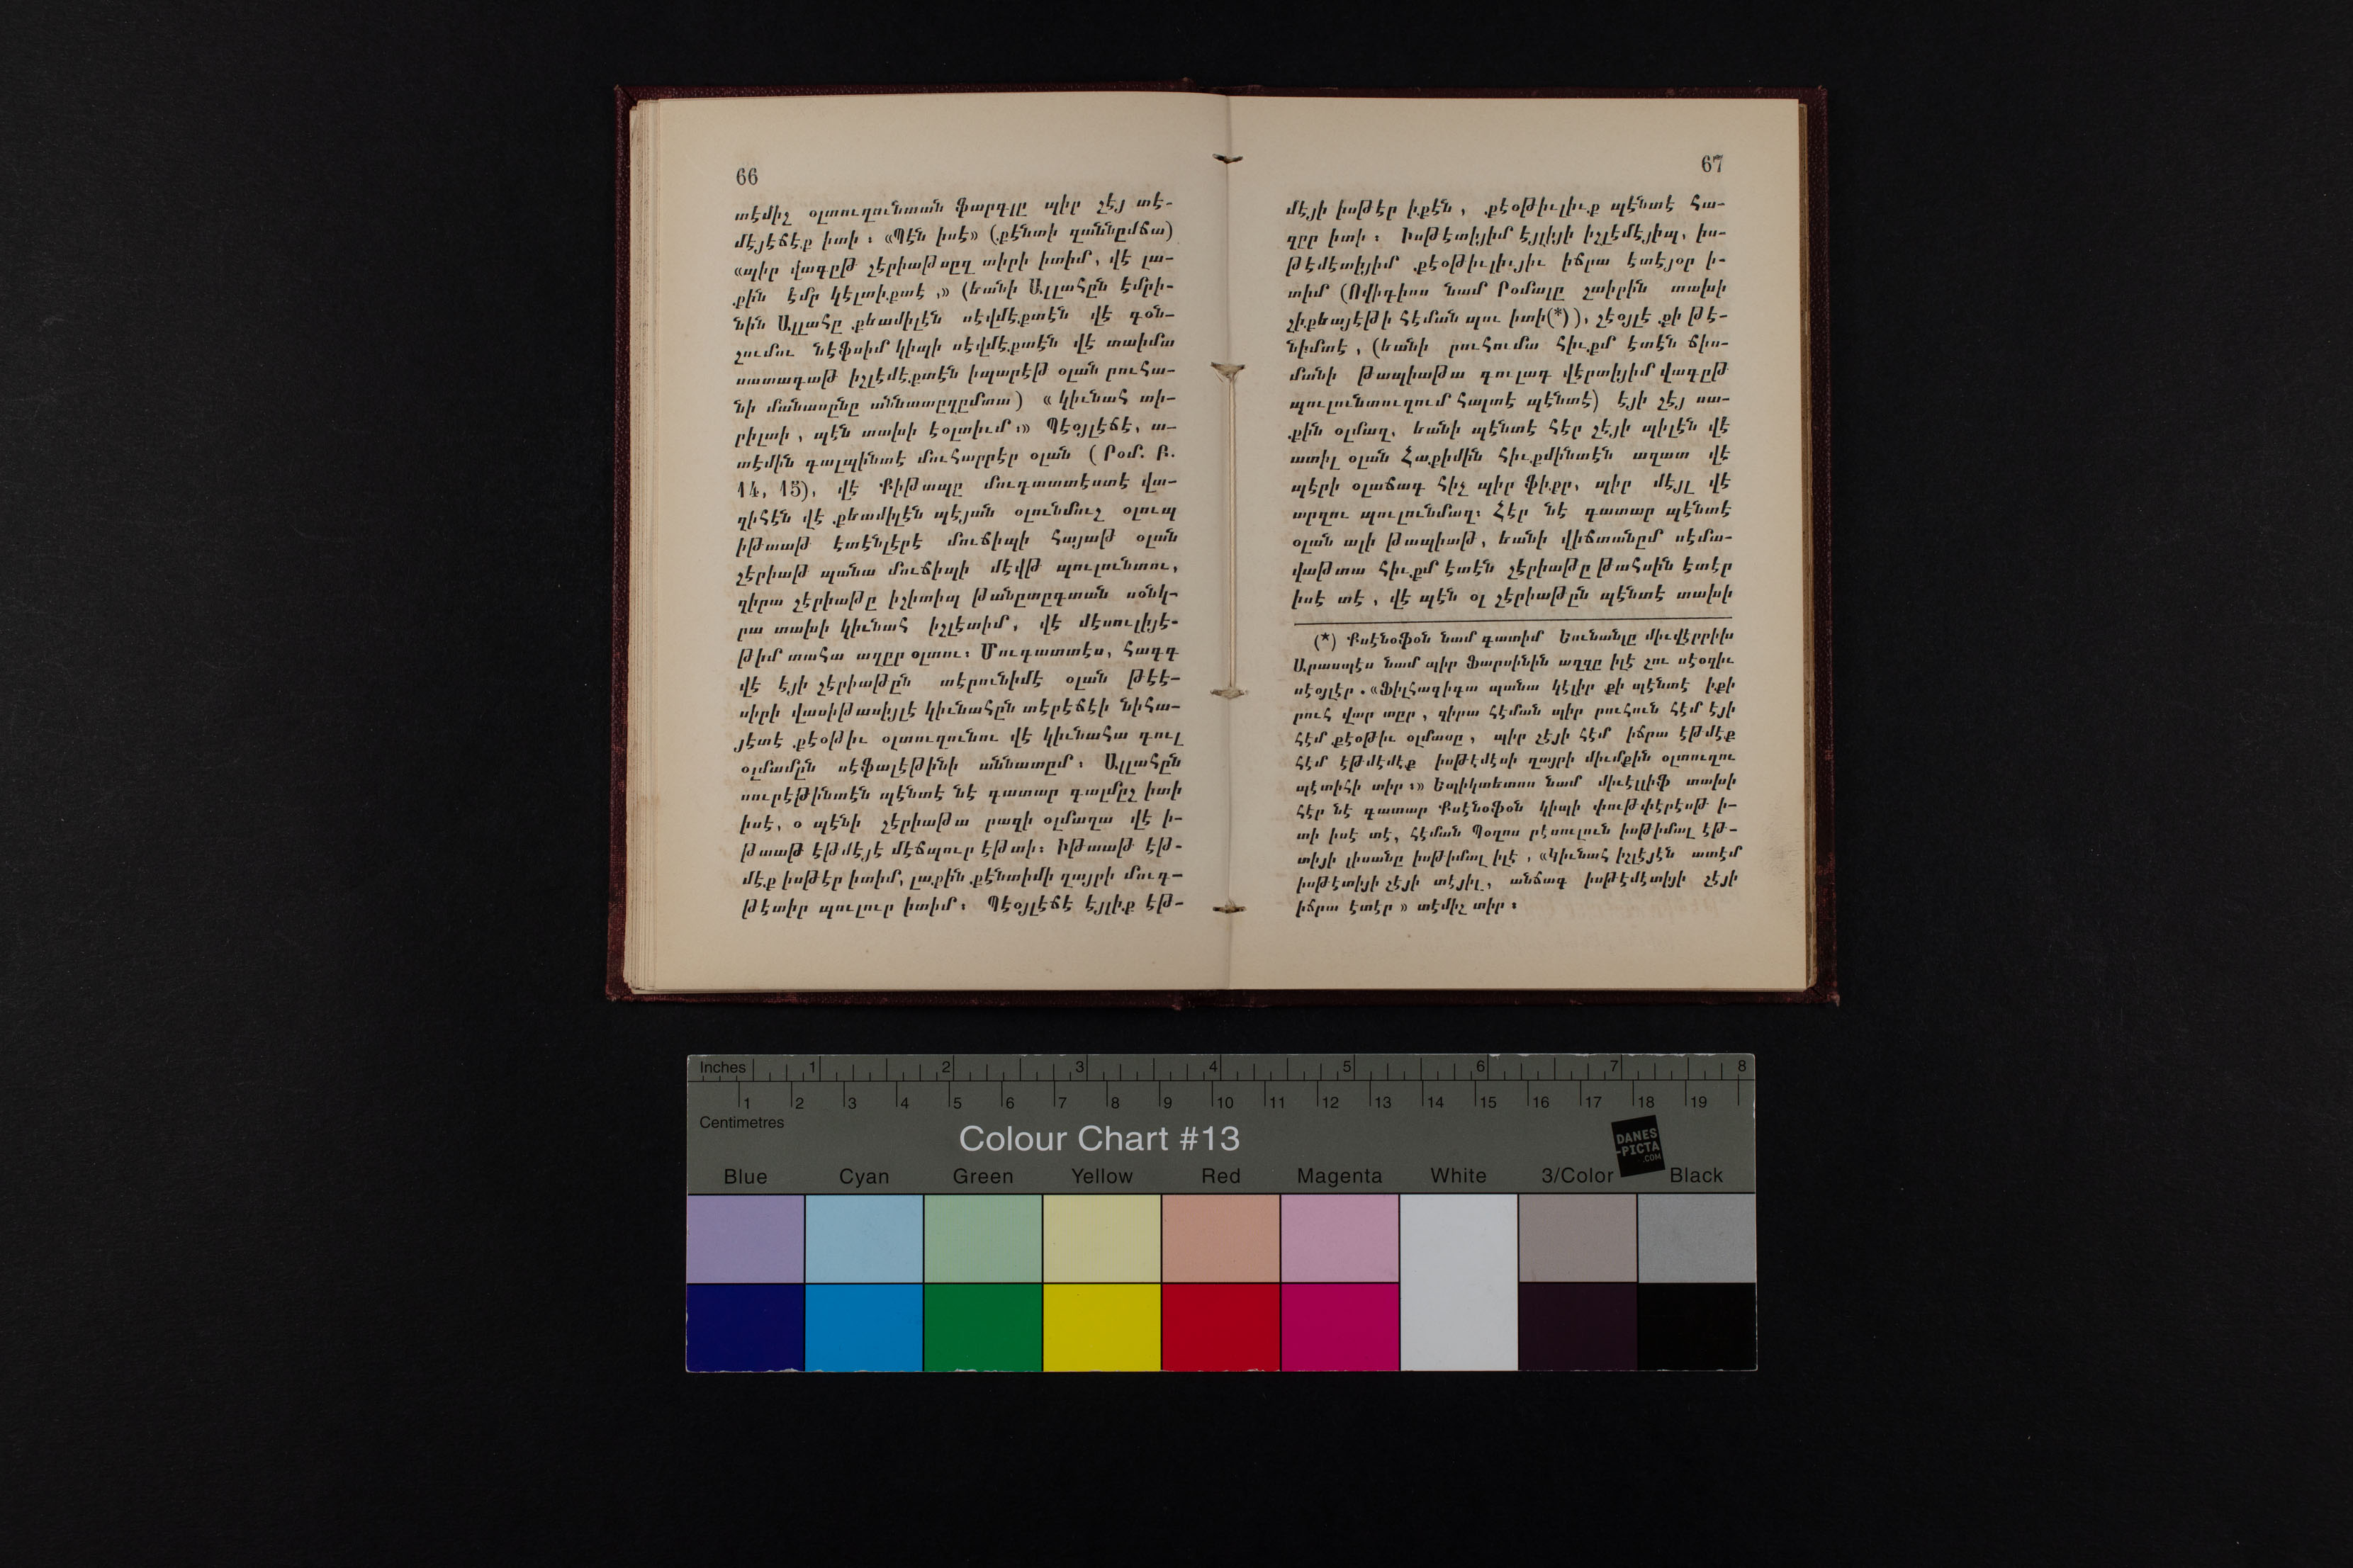 66
տէմիշ օլտուղունտան ֆարզլը պիր շէյ տէ-
մէյէճէք իտի ։ «Պէն իսէ» (քէնտի զաննըմճա)
«պիր վագըթ շէրիաթսըզ տիրի իտիմ, վէ լա-
քին էմր կէլտիքտէ ,» (եանի Ալլահըն էմրի-
նին Ալլահը քեամիլէն սէվմէքտէն վէ գօն-
շումու նէֆսիմ կիպի սէվմէքտէն վէ տաիմա
սատագաթ իշլէմէքտէն իպարէթ օլան րուհա-
նի մանասընը աննատըղըմտա) « կիւնահ տի-
րիլտի , պէն տախի էօլտիւմ ։» Պէօյլէճէ, ա-
տէմին գալպինտէ մուհարրէր օլան ( Րօմ. Բ.
14, 15), վէ Քիթապը մուգատտէստէ վա-
զիհէն վէ քեամիլէն պէյան օլունմուշ օլուպ
իթաաթ էտէնլէրէ մուճիպի հայաթ օլան
շէրիաթ պանա մուճիպի մէվթ պուլունտու,
զիրա շէրիաթը իշիտիպ թանըտըգտան սօնկ-
րա տախի կիւնահ իշլէտիմ, վէ մէսուլիյէ-
թիմ տահա աղըր օլտու։ Մուգատտէս, հագգ
վէ էյի շէրիաթըն տէրունիմէ օլան թէէ-
սիրի վասիթասիյլէ կիւնահըն տէրէճէի նիհա-
յէտէ քէօթիւ օլտուղունու վէ կիւնահա գուլ
օլմամըն սէֆալէթինի աննատըմ ։ Ալլահըն
սուրէթինտէն պէնտէ նէ գատար գալմըշ իտի
իսէ, օ պէնի շէրիաթա րազի օլմաղա վէ ի-
թաաթ էթմէյէ մէճպուր էթտի։ Իթաաթ էթ-
մէք իսթէր իտիմ, լաքին քէնտիմի ղայրի մուգ-
թէտիր պուլուր իտիմ ։ Պէօյլէճէ էյլիք էթ-
67
մէյի իսթէր իքէն , քէօթիւլիւք պէնտէ հա-
զըր իտի ։ Իսթէտիյիմ էյլիյի իշլէմէյիպ, իս-
թէմէտիյիմ քէօթիւլիւյիւ իճրա էտէյօր ի-
տիմ (Ովիդիոս նամ Րօմալը շաիրին տախի
շիքեայէթի հէման պու իտի(*)), շէօյլէ քի թէ-
նիմտէ , (եանի րուհումա հիւքմ էտէն ճիս-
մանի թապիաթա գուլագ վէրտիյիմ վագըթ
պուլունտուղում հալտէ պէնտէ) էյի շէյ սա-
քին օլմազ, եանի պէնտէ հէր շէյի պիլէն վէ
ատիլ օլան Հաքիմին հիւքմինտէն ազատ վէ
պէրի օլաճագ հիչ պիր ֆիքր, պիր մէյլ վէ
արզու պուլունմազ։ Հէր նէ գատար պէնտէ
օլան ալի թապիաթ, եանի վիճտանըմ սէմա-
վաթտա հիւքմ էտէն շէրիաթը թահսին էտէր
իսէ տէ , վէ պէն օլ շէրիաթըն պէնտէ տախի
(*) Քսէնօֆօն նամ գատիմ Եունանլը միւվէրրիխ
Արասպէս նամ պիր Ֆարսինին աղզը իլէ շու սէօզիւ
սէօյլէր . «Ֆիլհագիգա պանա կէլիր քի պէնտէ իքի
րուհ վար տըր , զիրա հէման պիր րուհուն հէմ էյի
հէմ քէօթիւ օլմասը , պիր շէյի հէմ իճրա էթմէք
հէմ էթմէմէք իսթէմէսի ղայրի միւմքին օլտուղու
պէտիհի տիր ։» Եպիկտետոս նամ միւէլլիֆ տախի
հէր նէ գատար Քսէնօֆօն կիպի փութփէրէսթ ի-
տի իսէ տէ, հէման Պօղոս րէսուլուն իսթիմալ էթ-
տիյի լիսանը իսթիմալ իլէ , «Կիւնահ իշլէյէն ատէմ
իսթէտիյի շէյի տէյիլ, անճագ իսթէմէտիյի շէյի
իճրա էտէր » տէմիշ տիր ։
Inches 1 2 3 4 5 6 7 8
1 2 3 4 5 6 7 8 9 10 11 12 13 14 15 16 17 18 19
Centimetres
Colour Chart #13
DANES
-PICTA
.COM
Blue Cyan Green Yellow Red Magenta White 3/Color Black